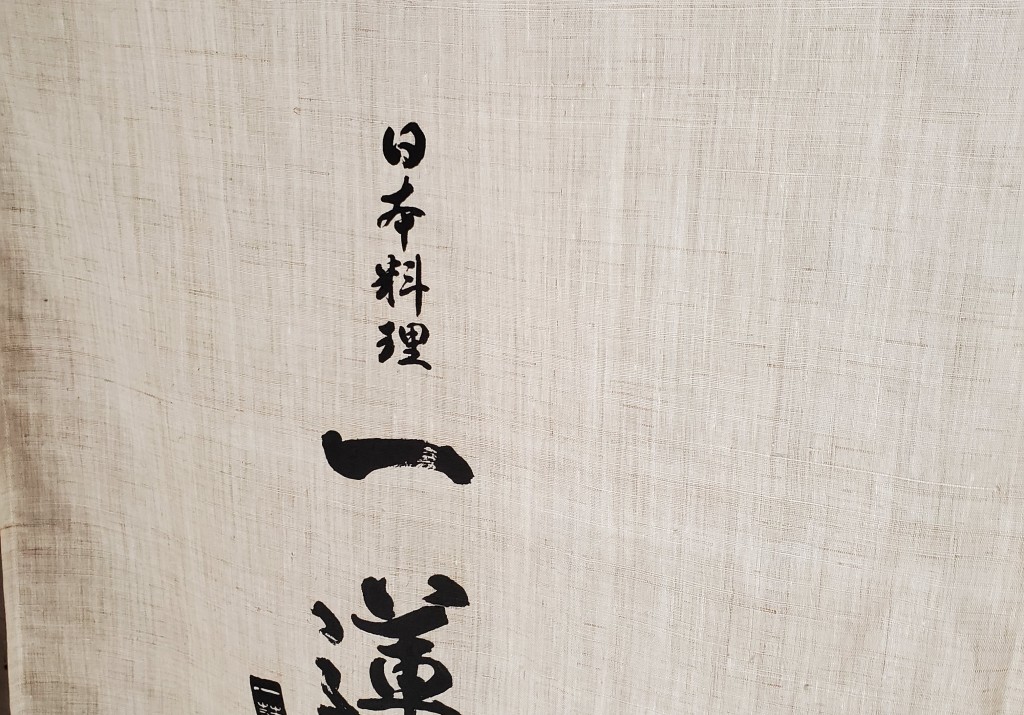 日本料理
一蓮